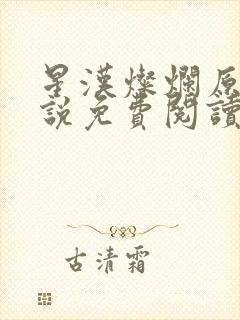 星漢燦爛原
說免費閱讀
古清霜